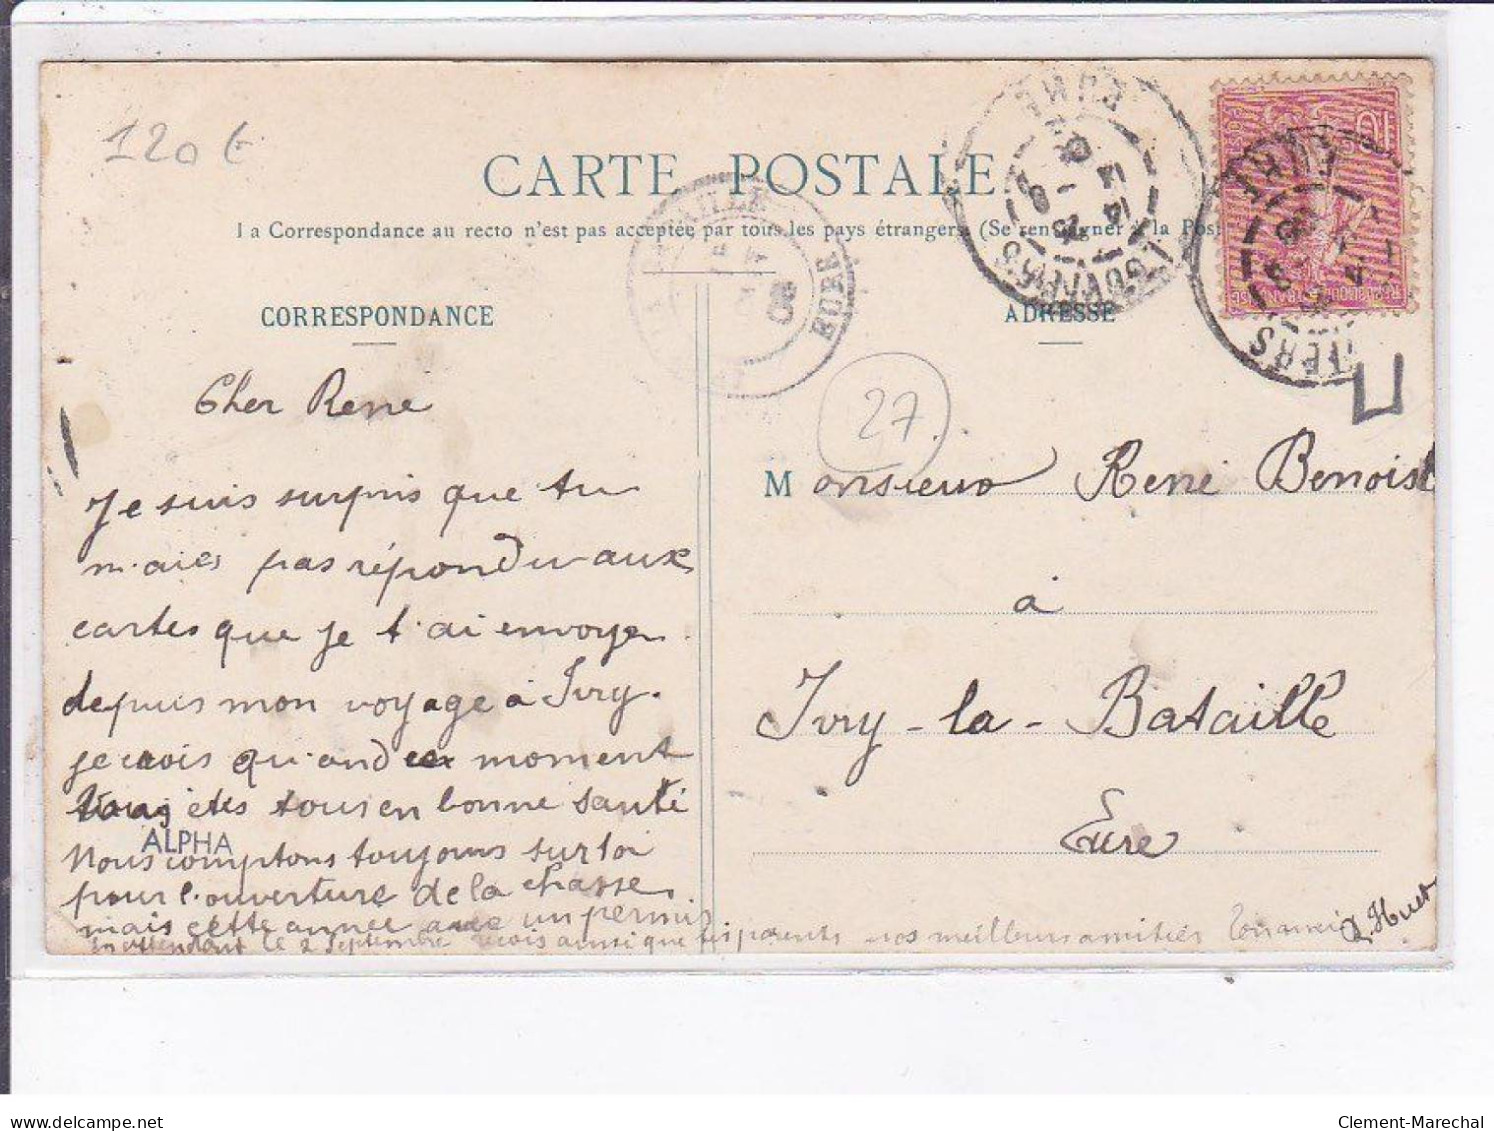 120 €
CARTE POSTALE
la Correspondance au recto n'est pas acceptée par tous les pays étrangers (Se renseigner à la Pos
CORRESPONDANCE
ADRESSE
EURE
08
LOUVIERS
EURE
27
Cher Rene
Je suis surpris que tu
m'aies pas répondu aux
cartes que je t'ai envoyer
depuis mon voyage à Ivry.
je crois qu'and ce moment
Vous êtes tous en bonne santé
ALPHA
Nous comptons toujours sur toi
pour l'ouverture de la chasse
mais cette année avec un permis
en attendant le 2 septembre reçois ainsi que tes parents nos meilleurs amitiés
L. Huet
Monsieur René Benoist
à
Ivry-la-Bataille
Eure
Clement-Marechal